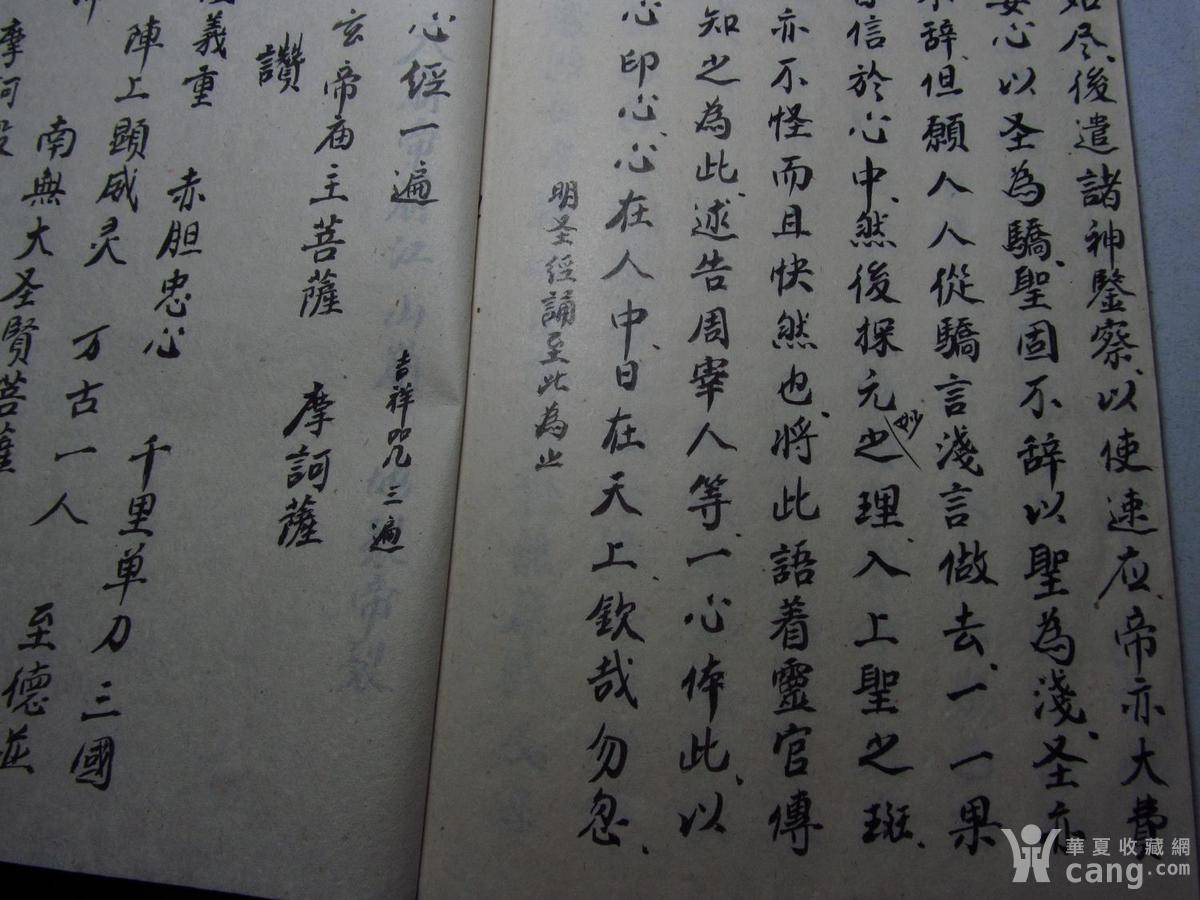 尽後遣諸神鑒察、以使速应、帝亦大費
心以圣為驕、聖固不辞以聖為淺、圣亦
辞、但願人人從驕言淺言做去、一一果
信於心中、然後探元妙之理、入上聖之班、
亦不怪而且快然也、將此語着靈官傳
知之為此、述告周宰人等、一心体此、以
心印心、心在人中、日在天上、欽哉勿忽、
明圣经誦至此為止
心经一遍 吉祥咒几三遍
玄帝庙主菩薩 摩訶薩
讚
義重 赤胆忠心 千里单刀 三國
陣上顯威灵 万古一人 至德並
南無大圣賢菩薩
摩訶
華夏收藏網
cang.com